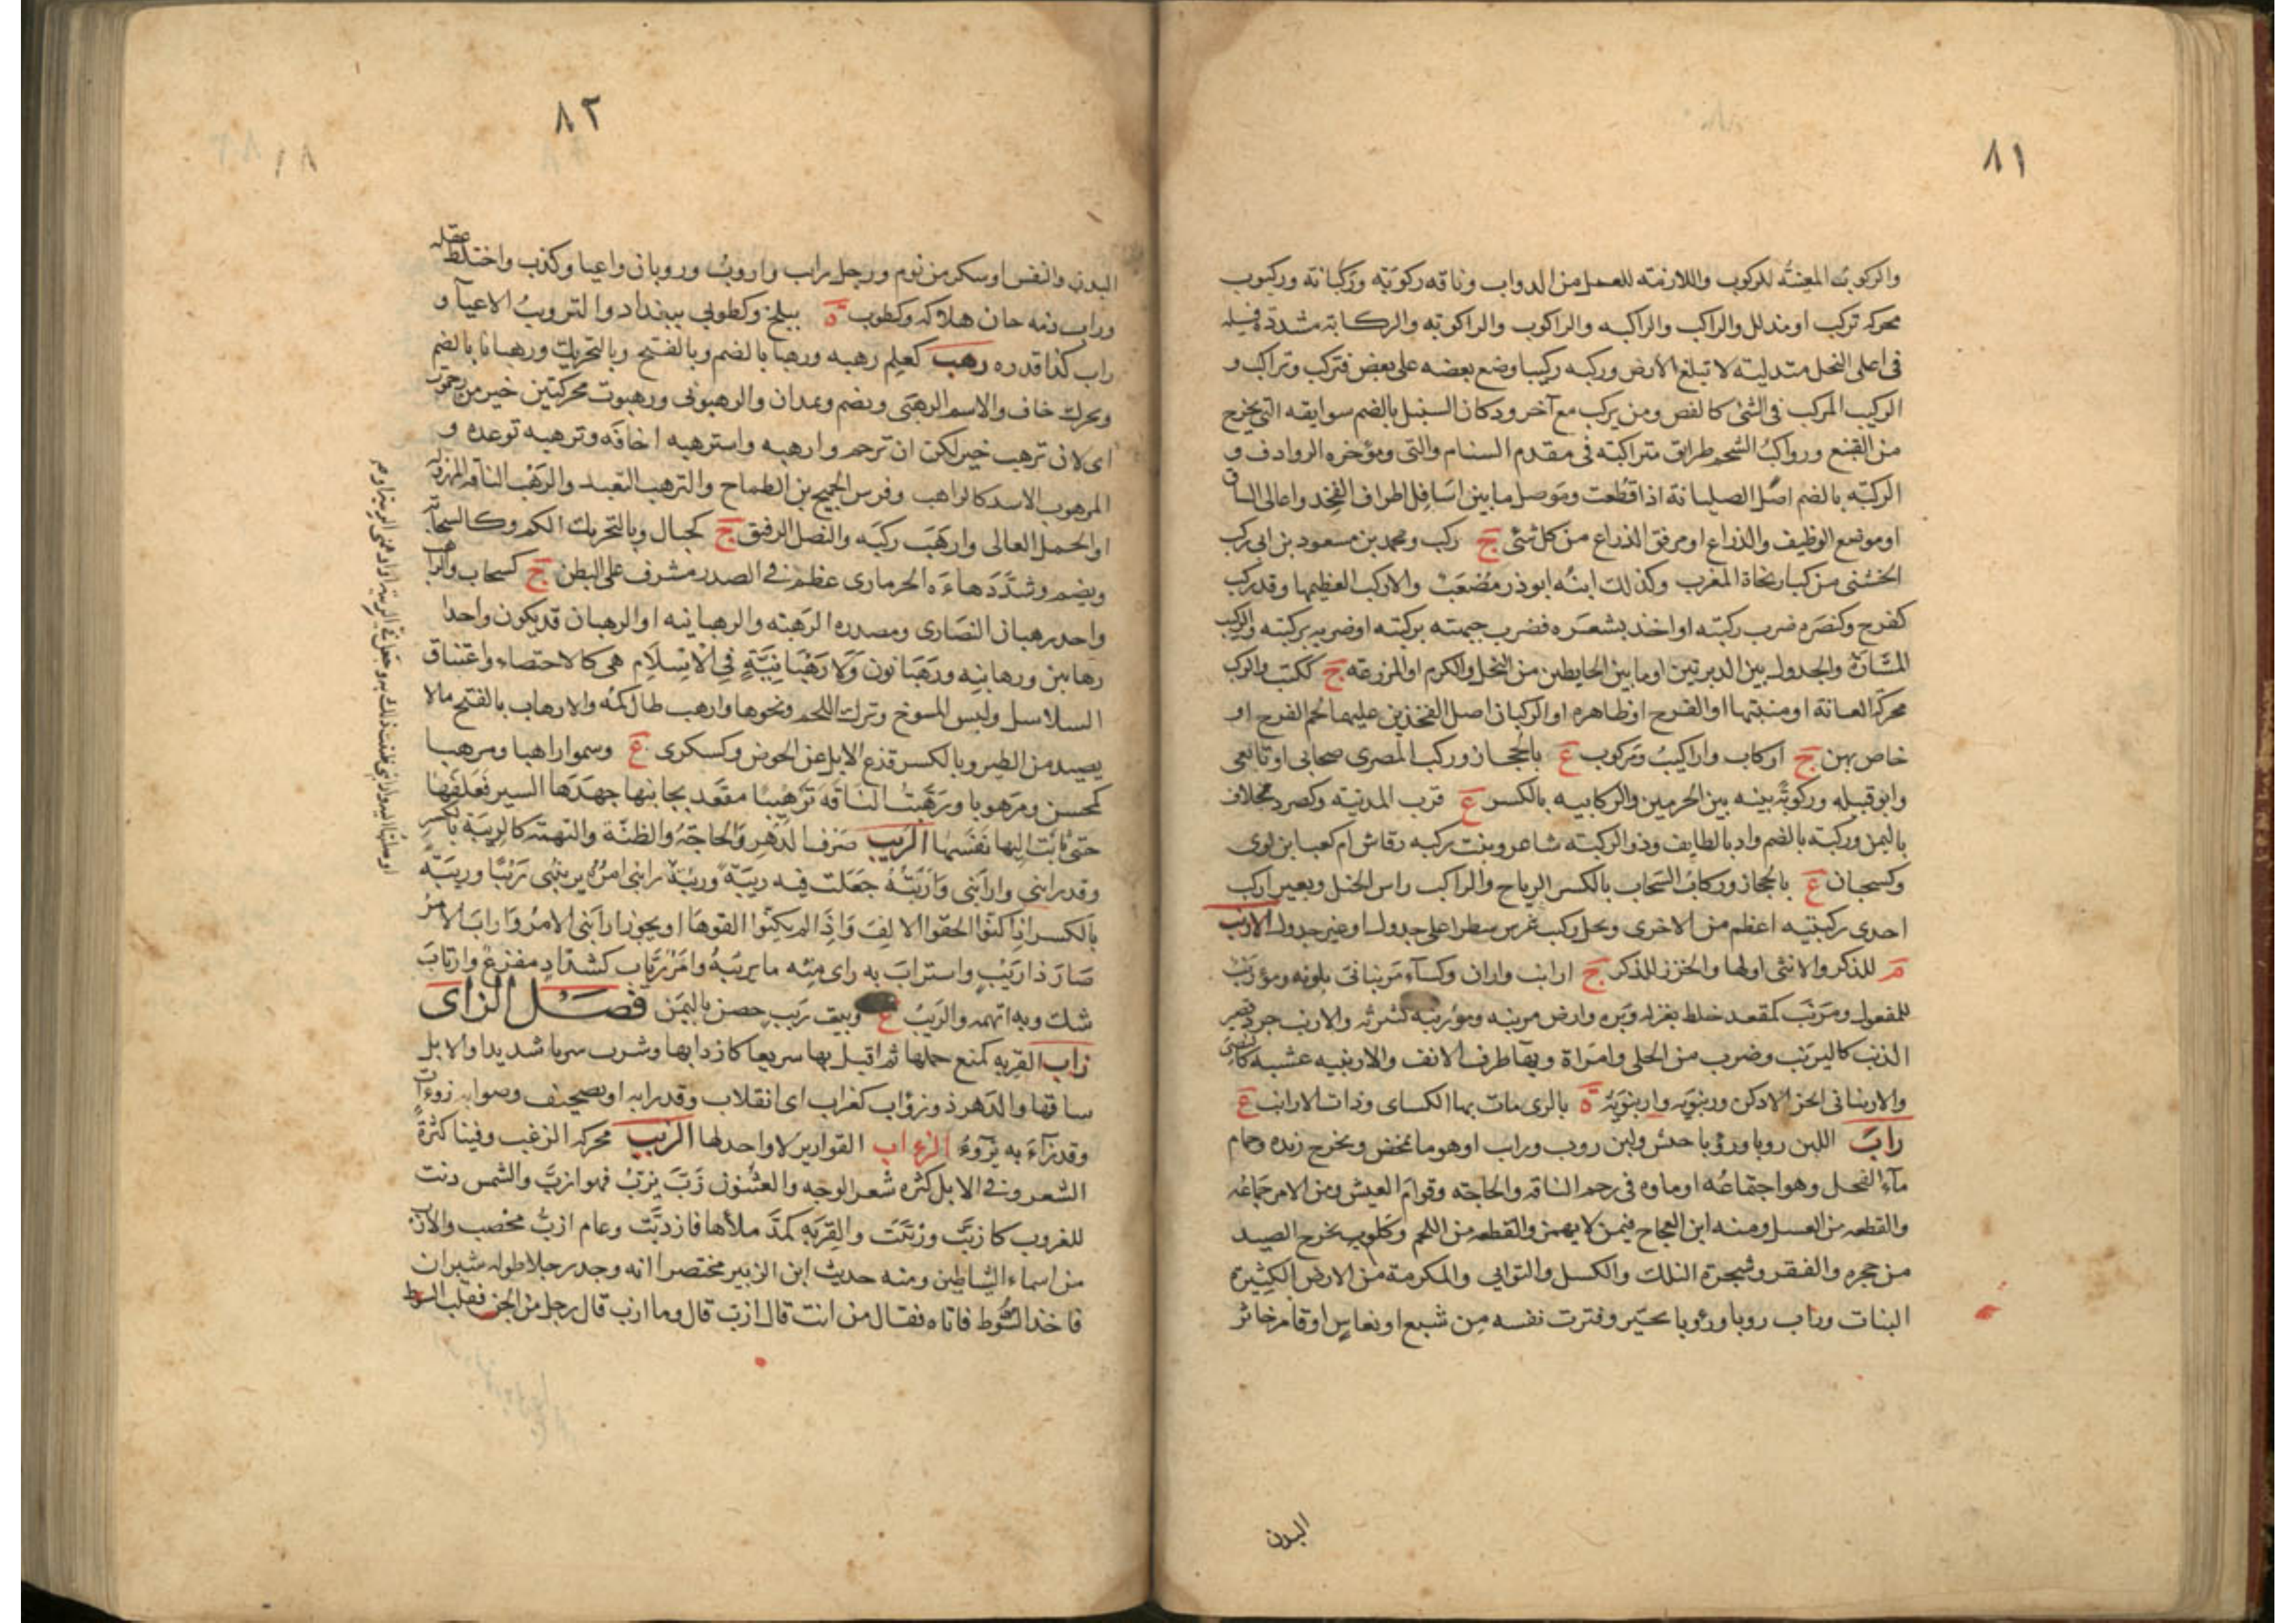 ٨١
والركوبه المعينة للركوب واللازمة للعمل من الدواب وناقه ركوبة وركبانة وركبوب
محركه تركب او مذلل والراكب والراكبه والراكوب والراكوبه والركابة مشددة فسيله
فى اعلى النخل متدلية لا تبلغ الأرض وركبه تركيبا وضع بعضه على بعض فتركب وتراكب و
الركيب المركب فى الشئ كالفص ومن يركب مع آخر وركان السنبل بالضم سوابقه التى تخرج
من القنبع ورواكب الشحم طرايق متراكبة فى مقدم السنام والتى ومؤخره الروادف و
الركبه بالضم اصل الصليانة اذا قطعت وموصل ما بين اسافل اطراف الفخذ واعالى الساق
او موضع الوظيف والذراع او مرفق الذراع من كل شئ ج ركب ومحمد بن مسعود بن ابى ركب
الخشنى من كبار نحاة المغرب وكذلك ابنه ابو ذر مصعب والاركب العظيمها وقد ركب
كفرح وكنصره ضرب ركبته او اخذ بشعره فضرب جبهته بركبته او ضربه بركبته والركيب
المشارة والجدول بين الدبرتين او ما بين الحايطين من النخل والكرم او المزرعه ج ككتب والركب
محركه العانة او منبتها او الفرج او ظاهره او الركبان اصل الفخذين عليهما لحم الفرج او
خاص بهن ج اركاب واراكيب ومركوب ع بالحجاز وركب المصرى صحابى او تابعى
وابو قبيله وركوبة ثنيه بين الحرمين والركابيه بالكسر ع قرب المدينه وكصرد مخلاف
باليمن وركبة بالضم واد بالطايف وذو الركبة شاعر وبنت ركبه رقاش ام كعب ابن لوى
وكسحبان ع بالحجاز وركاب السحاب بالكسر الرياح والراكب راس الجبل وبعير اركب
احدى ركبتيه اعظم من الاخرى ونخل ركيب غرس سطرا على جدول او غير جدول الارنب
م للذكر والانثى او لها والخزز للذكر ج ارانب واران وكساء مرنبانى بلونه ومؤرنب
للمفعول ومرنب كمقعد خلط بغزله وبره وارض مرنبه ومؤرنبه كثيرته والارنب جرذ قصير
الذنب كاليرنب وضرب من الحلى وامراة وبهاء طرف الانف والارينبه عشبه كالنصى
والارنبانى الخز الادكن ورنبويه وارنبويه ة بالرى مات بها الكساى وذات الارانب ع
راب اللبن روبا ورؤبا خثر ولبن روب وراب او هو ما تمخض ويخرج زبده وجمام
ماء الفحل وهو اجتماعه او ماوه فى رحم الناقه والحاجه وقوام العيش ومن الامر جماعه
والقطعه من العسل ومنه ابن العجاج فيمن لا يهمز والقطعه من اللحم وكلوب يخرج الصيد
من جحره والفقر وشجرة النلك والكسل والتوانى والمكرمة من الارض الكثيرة
النبات وراب روبا ورؤبا تحير وفترت نفسه من شبع او نعاس او قام خاثر
البدن
٨٢
البدن والنفس او سكر من نوم ورجل رايب واروب وروبان واعيا وكذب واختلط عقله
وراب دمه حان هلاكه وكطوب ة ببلخ وكطوبى ببغداد والترويب الاعيآ و
راب كذا قدره رهب كعلم رهبه ورهبا بالضم وبالفتح وبالتحريك ورهبانا بالضم
ويحرك خاف والاسم الرهبى ويضم ويمدان والرهبوتى ورهبوت محركتين خير من رحموت
اى لان ترهب خير لك من ان ترحم وارهبه واسترهبه اخافه وترهبه توعده و
المرهوب الاسد كالراهب وفرس الجميح بن الطماح والترهب التعبد والرهب الناقه المهزوله
او الجمل العالى وارهب ركبه والنصل الرقيق ج كجبال وبالتحريك الكم وكالسحابة
ويضم وشدد هاءه الحرمازى عظم فى الصدر مشرف على البطن ج كسحاب والراهب
واحد رهبان النصارى ومصدره الرهبه والرهبانيه او الرهبان قد يكون واحدا
رهابين ورهابنه ورهبانون ولا رهبانية فى الاسلام هى كالاختصاء واعتناق
السلاسل ولبس المسوح وترك اللحم ونحوها وارهب طال كمه والارهاب بالفتح ما لا
يصيد من الطير وبالكسر قدع الابل عن الحوض وكسكرى ع وسموا راهبا ومرهبا
كمحسن ومرهوبا ورهبت الناقه ترهيبا فقعد يحابيها جهدها السير فعلفها
حتى ثابت اليها نفسها الريب صرف الدهر والحاجة والظنة والتهمة كالريبة بالكسر
وقد رابنى وارابنى واربته جعلت فيه ريبة وربته رابنى امره يريبنى ريبا وريبة
بالكسر اذا كنوا الحقوا الالف واذا لم يكنوا القوها او يجوز ارابنى الامر واراب الامر
صار ذا ريب واستراب به راى منه ما يريبه وامر رياب كشداد مفزع وارتاب
شك وبه اتهمه والريب ع وبيت ريب حصن باليمن فصل الزاى
زاب القربه كمنع حملها ثم اقبل بها سريعا كازدابها وشرب شربا شديدا والابل
ساقها والدهر ذو زؤاب كغراب اى انقلاب وقد زاب او تصحيف وصوابه زوءات
وقد زآء به يزوء الزءاب القوارير لا واحد لها الزبب محركه الزغب وفينا كثرة
الشعر وفى الابل كثره شعر الوجه والعثنون زب يزب فهو ازب والشمس دنت
للغروب كازبت وزببت والقربه كمد ملأها فازدبت وعام ازب مخصب والازب
من اسماء الشياطين ومنه حديث ابن الزبير مختصرا انه وجد رجلا طوله شبران
فاخذ السوط فاتاه فقال من انت قال ازب قال وما ازب قال رجل من الجن فقلب السوط